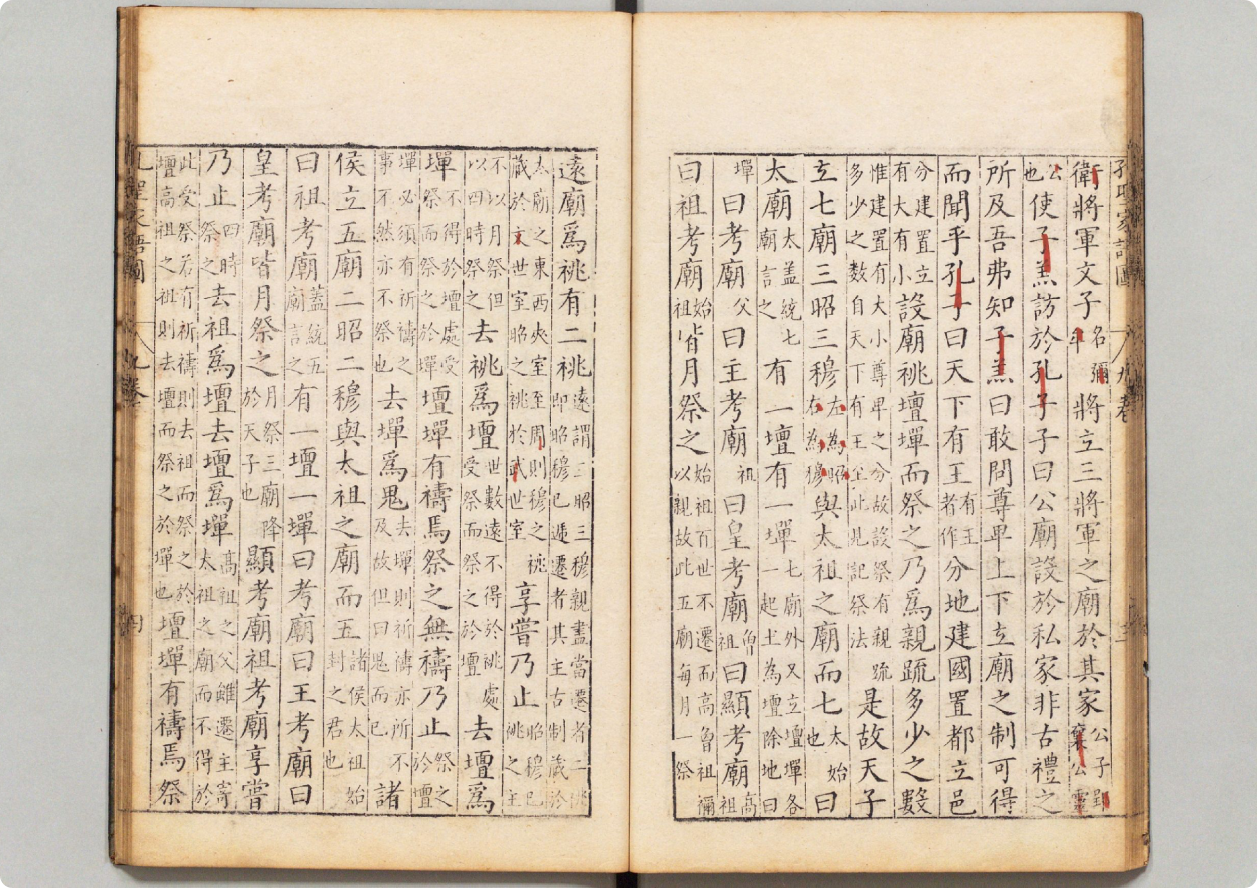 孔聖家語圖 八九卷
衛將軍文子名彌牟將立三將軍之廟於其家公子郢襄公靈
公也使子羔訪於孔子子曰公廟設於私家非古禮之
所及吾弗知子羔曰敢問尊卑上下立廟之制可得
而聞乎孔子曰天下有王有王者作分地建國置都立邑
分建置立有大有小設廟祧壇墠而祭之乃爲親疏多少之數
惟建置有大小尊卑之分故設祭有親疏多少之數自天下有王至此見記祭法是故天子
立七廟三昭三穆左為昭右為穆與太祖之廟而七太始也曰
太廟太蓋統七廟言之有一壇有一墠七廟外又立壇墠各一起土為壇除地曰
墠曰考廟父曰王考廟祖曰皇考廟曾祖曰顯考廟高祖
曰祖考廟始祖皆月祭之始祖百世不遷而高曾祖禰以親故此五廟每月一祭
遠廟爲祧有二祧遠謂三昭三穆親盡當遷者二祧即昭穆已遞遷者其主古制藏於
太廟之東西夾室至周則穆之祧藏於文世室昭之祧於武世室享嘗乃止昭穆已祧之主
不以月祭但以四時祭之去祧爲壇世數遠不得於祧處受祭而祭之於壇去壇爲
墠不得於壇處受祭而祭之於墠壇墠有禱焉祭之無禱乃止祭之於壇
墠必須有祈禱之事不然亦不祭也去墠爲鬼去墠則祈禱亦所不及故但曰鬼而已諸
侯立五廟二昭二穆與太祖之廟而五諸侯太祖始封之君也
曰祖考廟蓋統五廟言之有一壇一墠曰考廟曰王考廟曰
皇考廟皆月祭之月祭三廟降於天子也顯考廟祖考廟享嘗
乃止四時祭之去祖爲壇去壇爲墠高祖之父雖遷主寄太祖之廟而不得於
此受祭若有祈禱則去祖而祭之於壇高祖之祖則去壇而祭之於墠也壇墠有禱焉祭